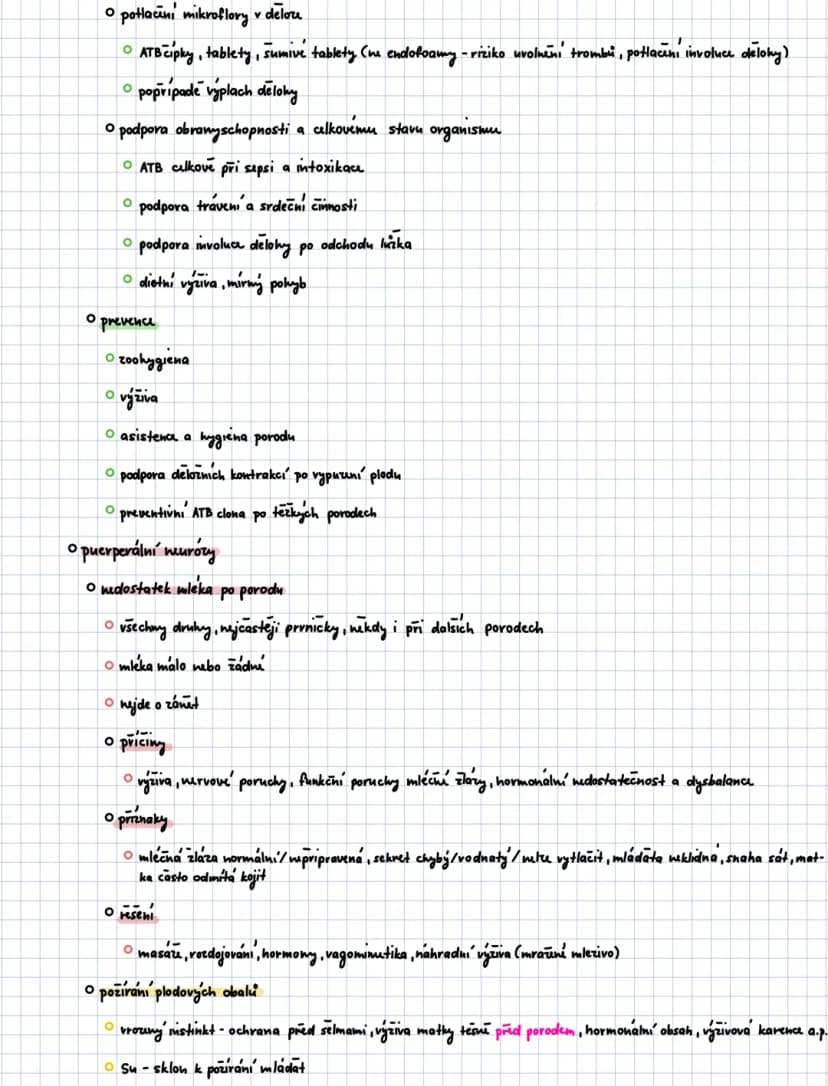 potlačení mikroflory v děloze
ATB čípky, tablety, šumivé tablety (ne endofoamy - riziko uvolnění trombů, potlačení involuce dělohy)
popřípadě výplach dělohy
podpora obranyschopnosti a celkovému stavu organismu
ATB celkově při sepsi a intoxikace
podpora trávení a srdeční činnosti
podpora involuce dělohy po odchodu lůžka
dietní výživa, mírný pohyb
prevence
zoohygiena
výživa
asistence a hygiena porodu
podpora děložních kontrakcí po vypuzení plodu
preventivní ATB clona po těžkých porodech
puerperální neurózy
nedostatek mléka po porodu
všechny druhy, nejčastěji prvničky, někdy i při dalších porodech
mléka málo nebo žádné
nejde o zánět
příčiny
výživa, nervové poruchy, funkční poruchy mléčné žlázy, hormonální nedostatečnost a dysbalance
příznaky
mléčná žláza normální/nepřipravená, sekret chybý/vodnatý/nelze vytlačit, mláďata neklidná, snaha sát, mat-
ka často odmítá kojit
řešení
masáže, rozdojování, hormony, vagomimetika, náhradní výživa (mražené mlezivo)
požírání plodových obalů
vrozený instinkt - ochrana před šelmami, výživa matky těsně před porodem, hormonální obsah, výživová karence a.p.
Su - sklon k požírání mláďat